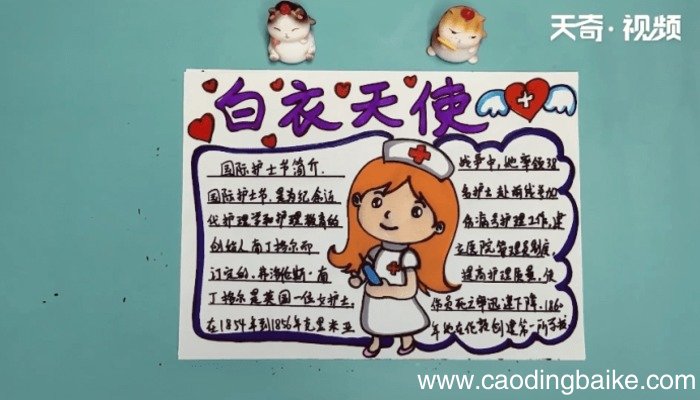 天奇·视频
白衣天使
国际护士节简介.
国际护士节,是为纪念近
代护理学和护理教育的
创始人南丁格尔而
订立的.弗洛伦斯·南
丁格尔是英国一位女护士,
在1854年到1856年克里米亚
战争中,她率领
护士赴前线参加
伤病员护理工作,建
立医院管理制度,
提高护理质量,使
伤员死亡率迅速下降.1860
年她在伦敦创建第一所
www.caodingbaike.com